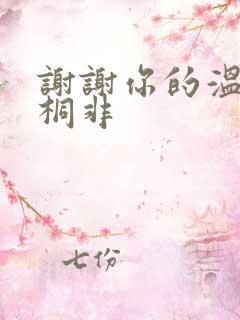 謝謝你的溫
桐非
七份